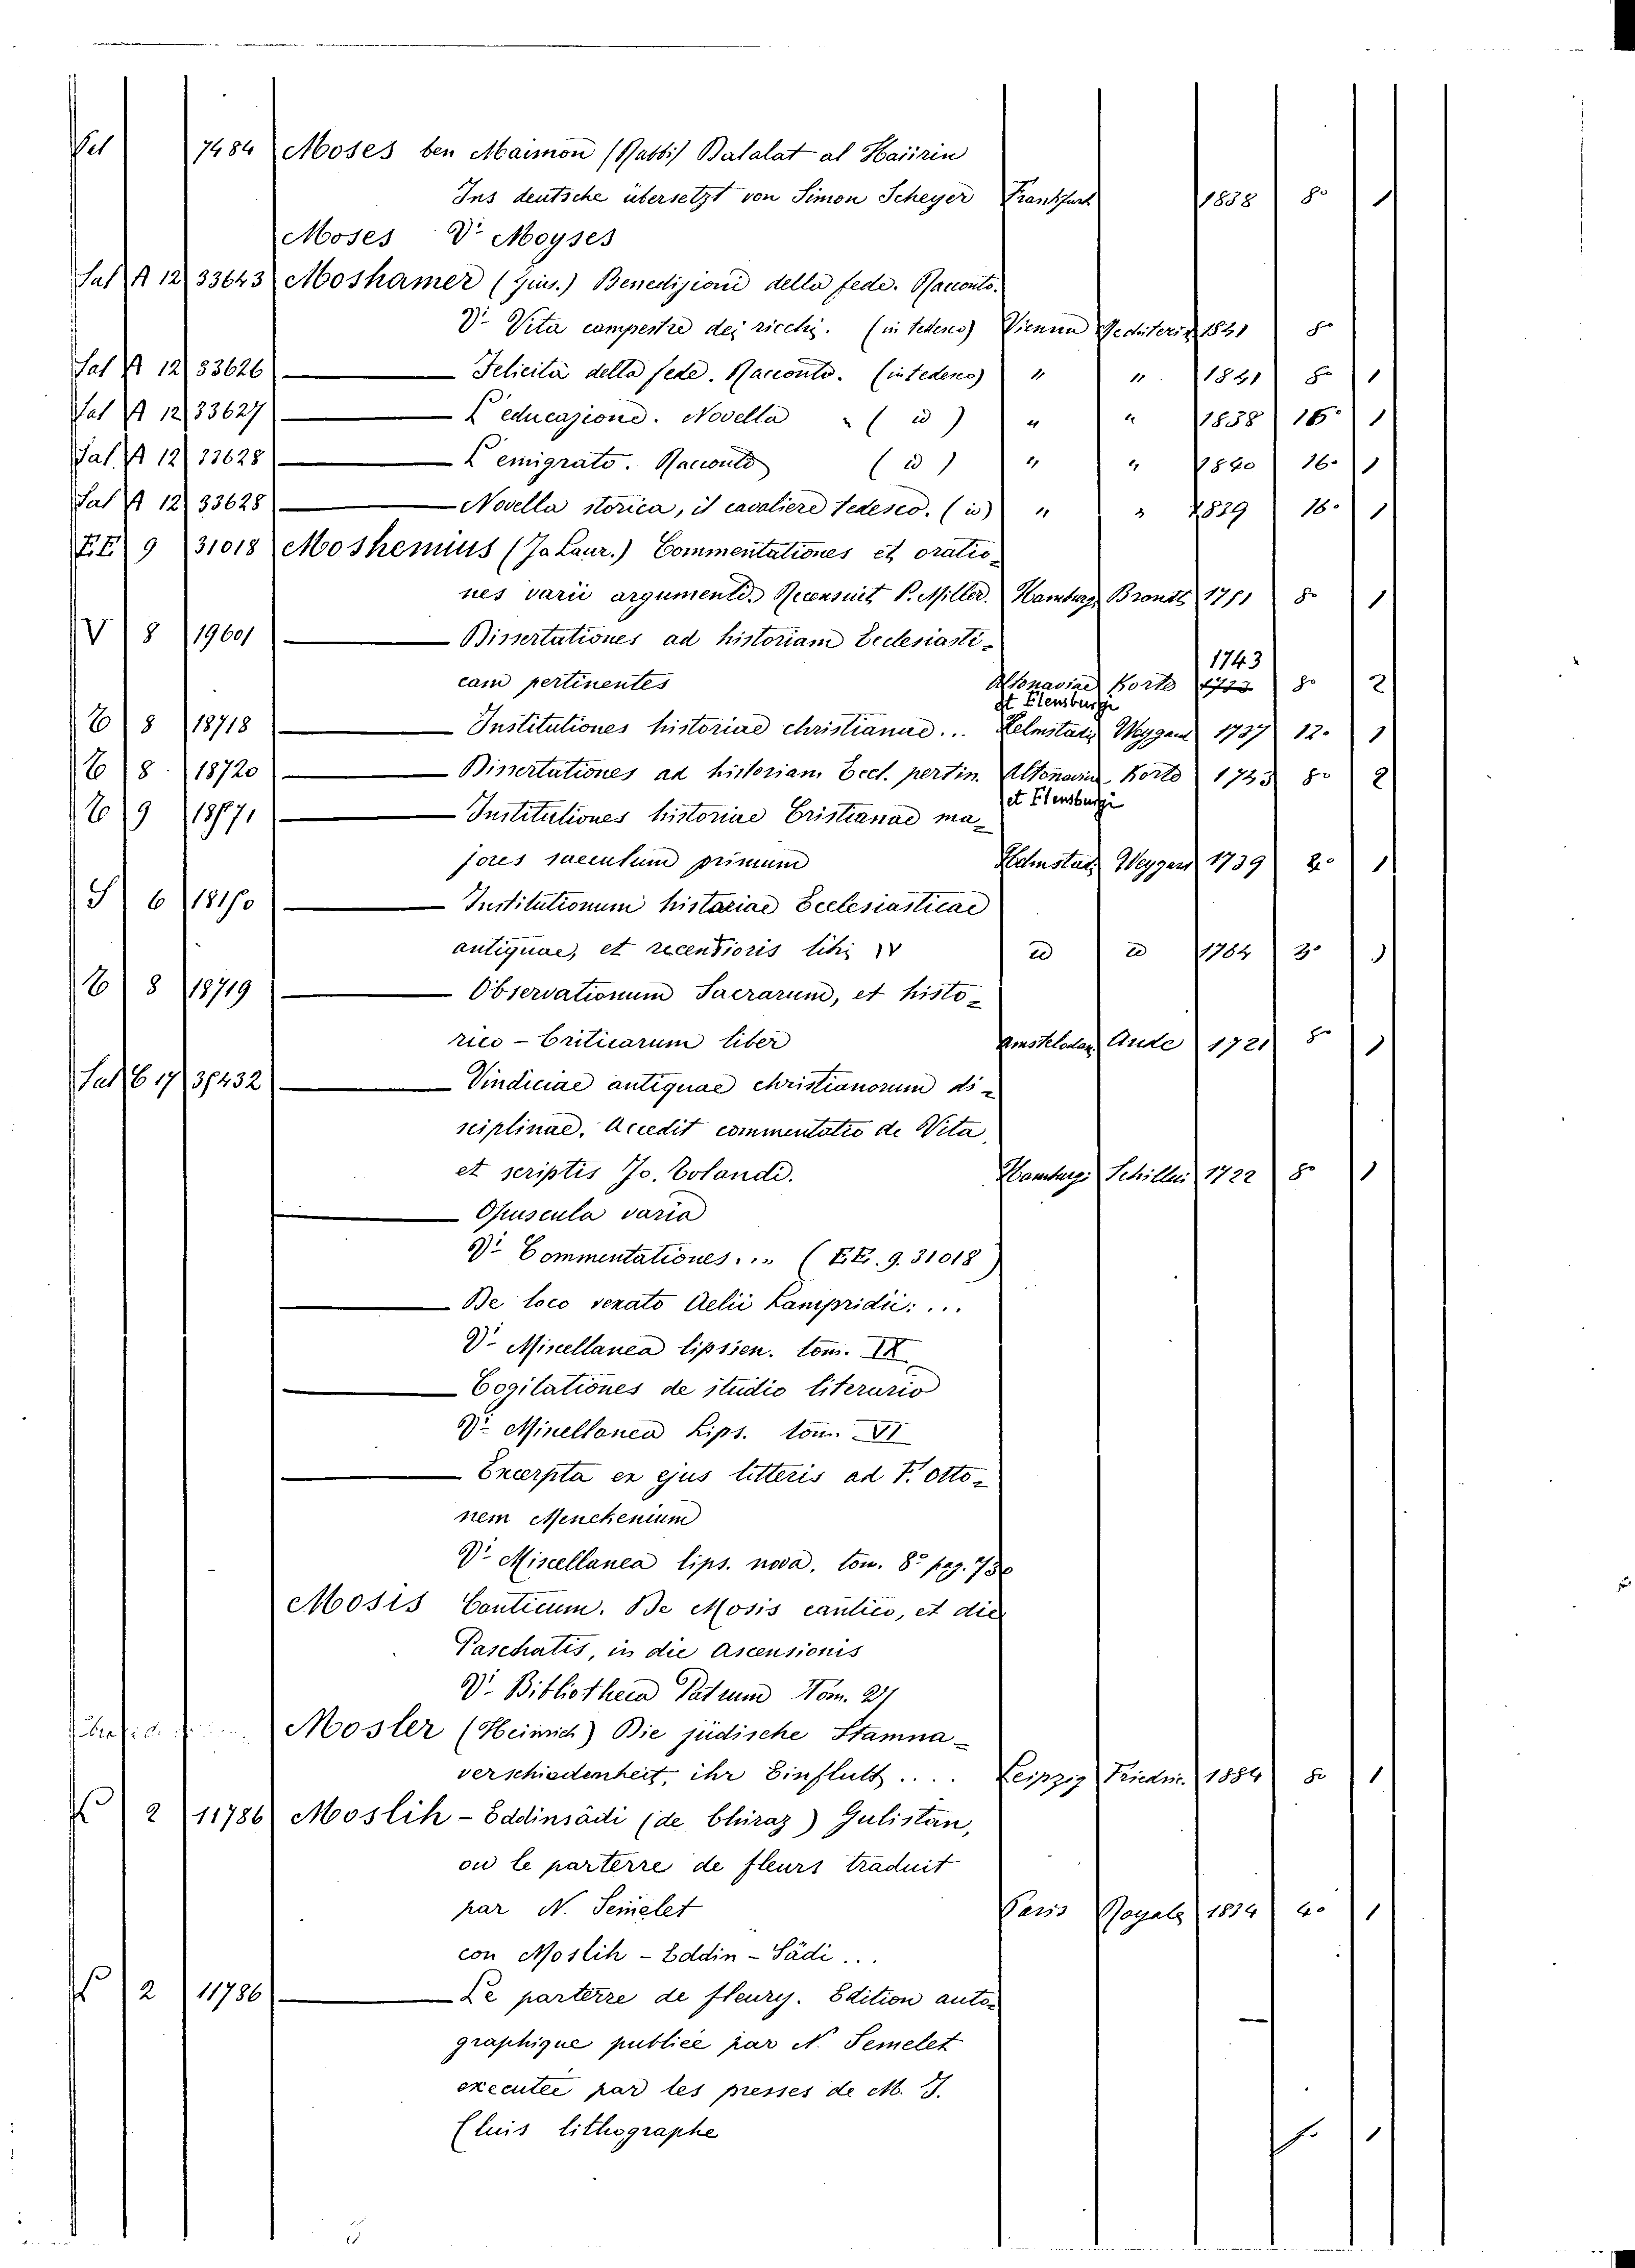 7484 Moses ben Maimon (Rabbi) Dalalat al Haiirin
Ins deutsche übersetzt von Simon Scheyer Frankfurt 1838 8° 1
Moses V. Moyses
Sal A 12 33643 Moshamer (Gius.) Benedizioni della fede. Racconto.
V. Vita campestre dei ricchi. (in tedesco) Vienna 1841 8°
Sal A 12 33626 Felicità della fede. Racconto. (in tedesco) " " 1841 8° 1
Sal A 12 33627 L'educazione. Novella " (id) " " 1838 16° 1
Sal. A 12 33628 L'emigrato. Racconto (id) " " 1840 16° 1
Sal A 12 33628 Novella storica, il cavaliere tedesco. (id) " " 1839 16° 1
EE 9 31018 Moshemius (Jo Laur.) Commentationes et oratio-
nes varii argumenti. Recensuit P. Miller. Hamburg. 8° 1
V 8 19601 Dissertationes ad historiam Ecclesiasti-
cam pertinentes Altonaviae et Flensburgi Korte 1743 8° 2
8 18718 Institutiones historiae christianae... Helmstadi Weygand 1737 12° 1
8 18720 Dissertationes ad historiam Eccl. pertin. Altonaviae et Flensburgi Korte 8° 2
9 Institutiones historiae Cristianae ma-
jores saeculum primum Helmstad. Weygand 1739 1
S 6 Institutionum historiae Ecclesiasticae
antiquae, et recentioris libri IV id id 1764 1
8 18719 Observationum Sacrarum, et histo-
rico-Criticarum liber Amstelodam 1721 8° 1
Sal 6 17 Vindiciae antiquae christianorum di-
sciplinae. Accedit commentatio de Vita
et scriptis Jo. Tolandi. Hamburgi 1722 8° 1
Opuscula varia
V. Commentationes... (EE. 9. 31018)
De loco vexato Aelii Lampridii: ...
V. Miscellanea lipsien. tom. IX
Cogitationes de studio literario
V. Miscellanea Lips. tom. VI
Excerpta ex ejus litteris ad F. Otto-
nem Menckenium
V. Miscellanea lips. nova. tom. 8° pag.
Mosis Canticum. De Mosis cantico, et die
Paschatis, in die Ascensionis
V. Bibliotheca Patrum Tom. 27
Mosler (Heinrich) Die jüdische Stamma-
verschiedenheit, ihr Einfluss.... Leipzig Friedri. 1884 8° 1
2 11786 Moslih-Eddinsâdi (de Chiraz) Gulistan,
ou le parterre de fleurs traduit
par N. Semelet Paris Royale 1834 4° 1
con Moslih-Eddin-Sâdi...
2 11786 Le parterre de fleurs. Edition auto-
graphique publiée par N. Semelet
executée par les presses de M. J.
Cluis lithographe 1